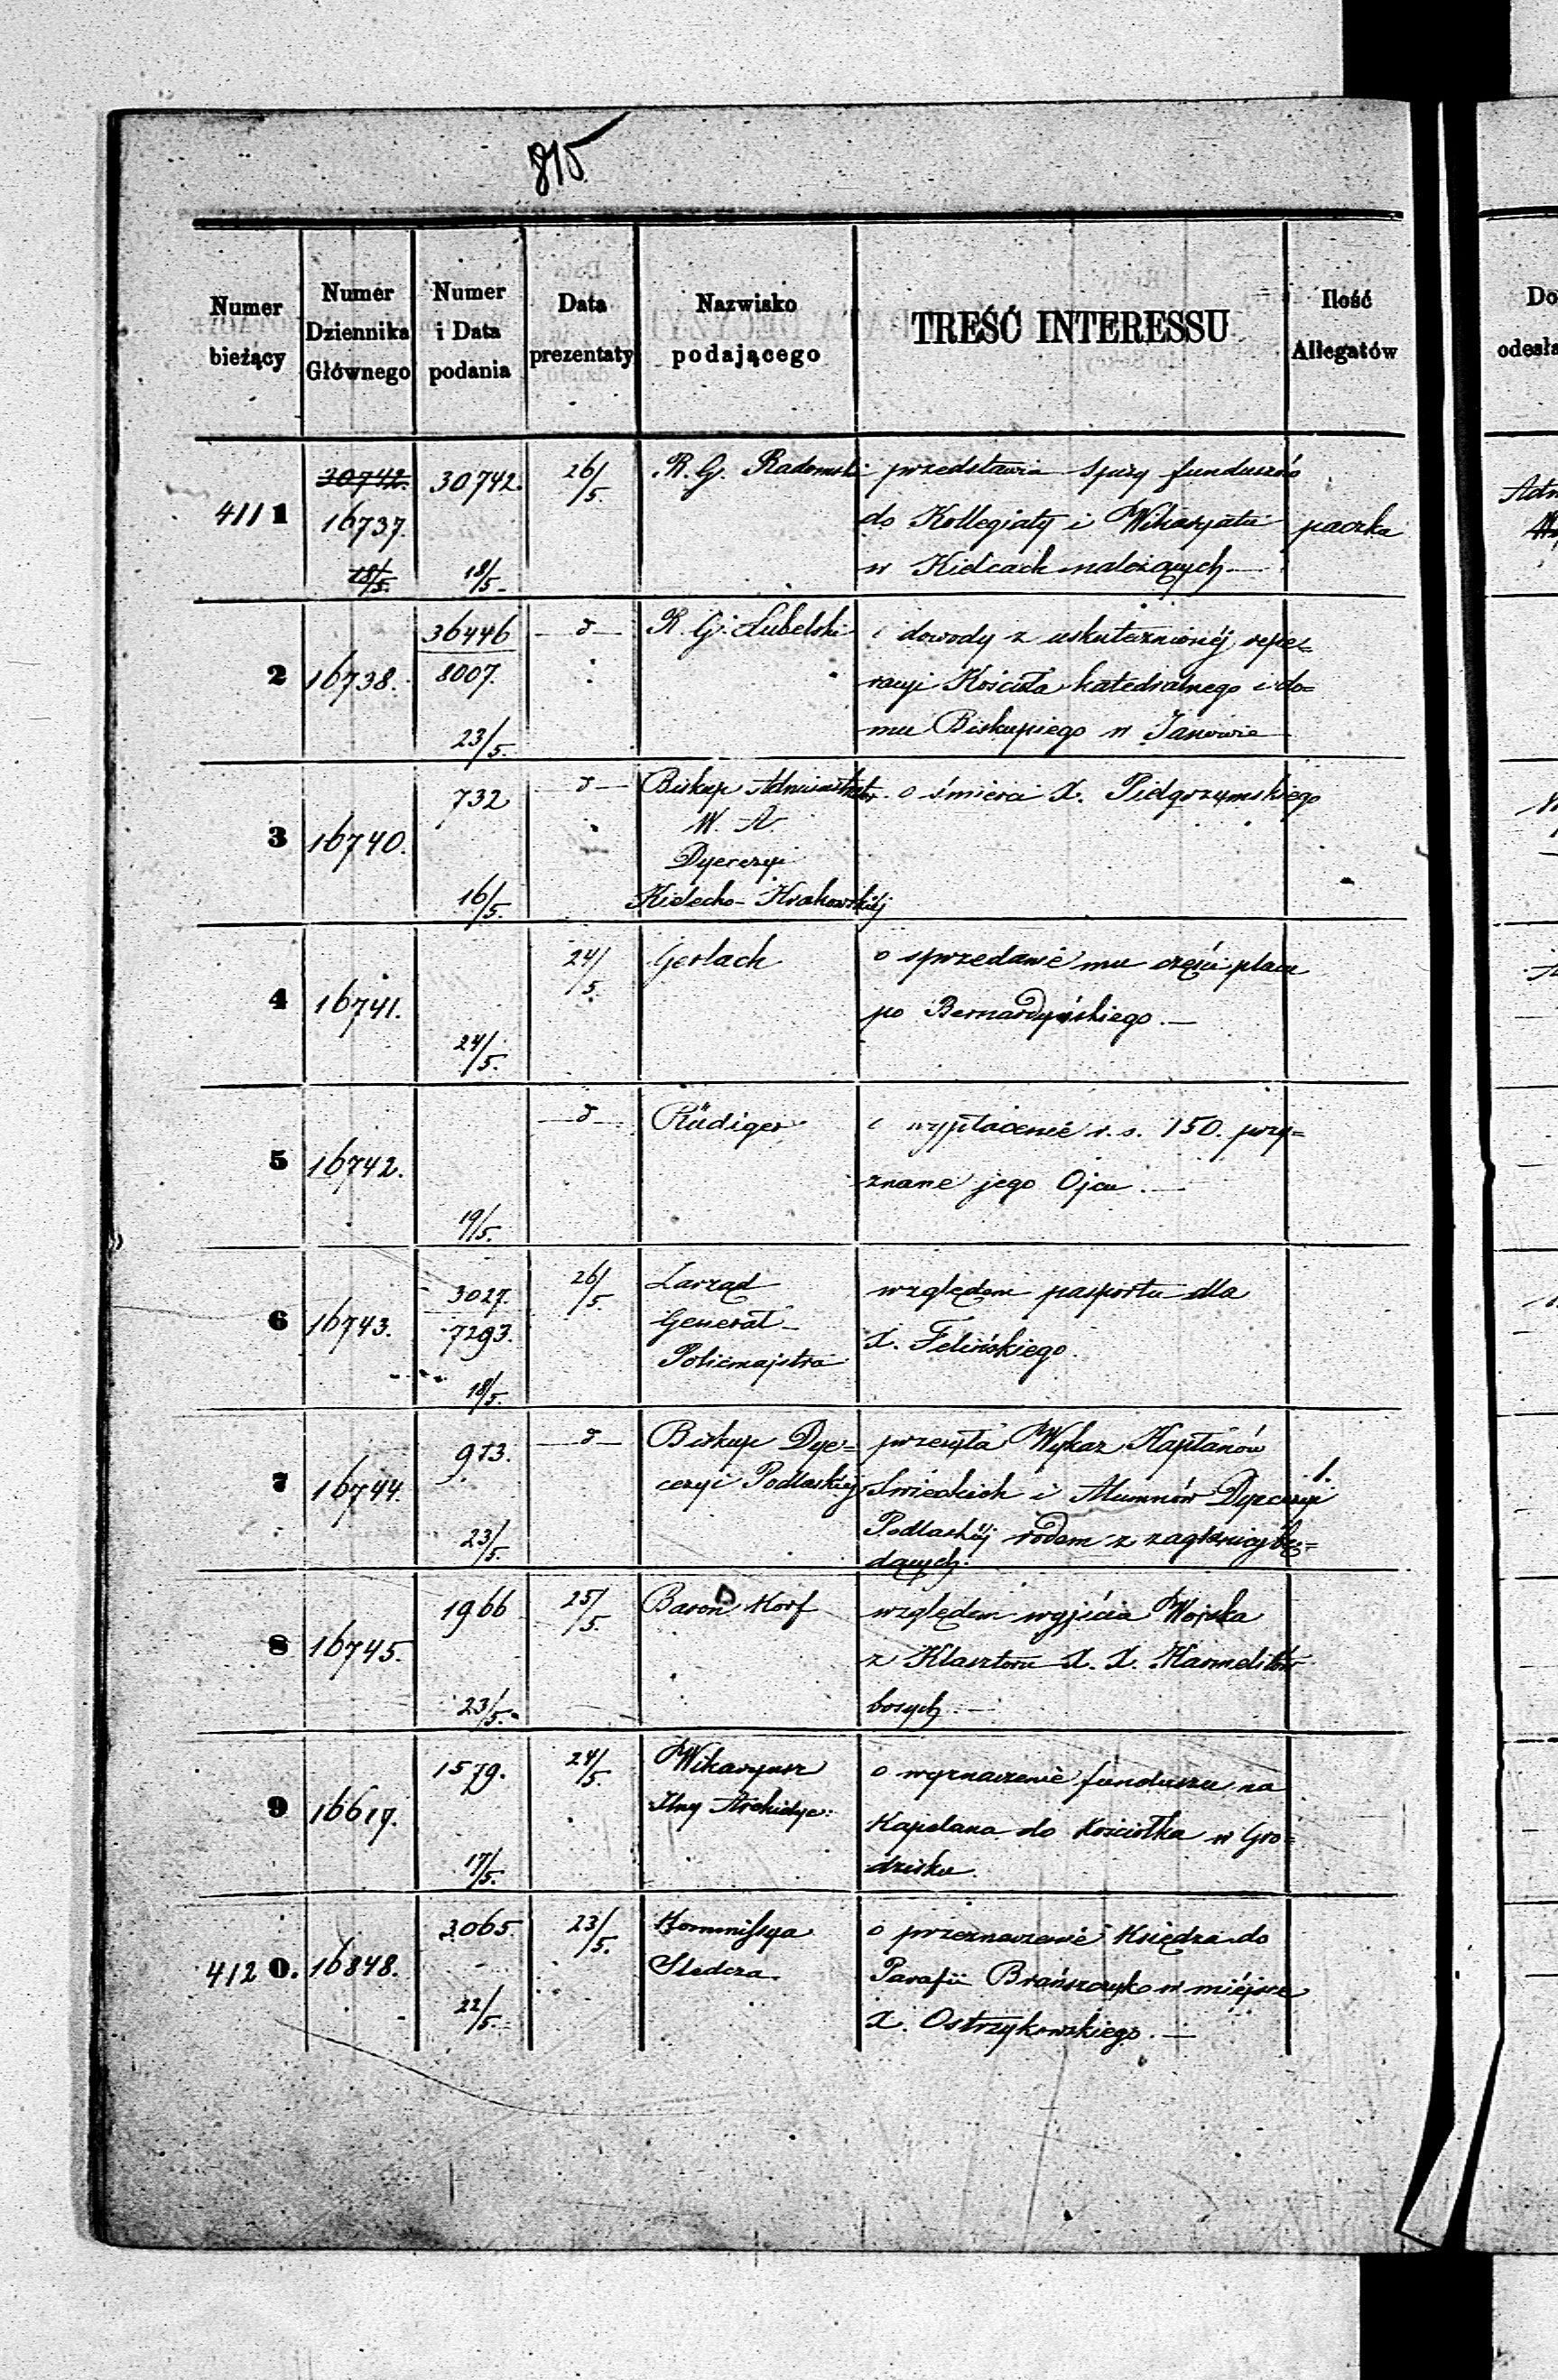 815
Numer bieżący
Numer Dziennika Głównego
Numer i Data podania
Data prezentaty
Nazwisko podającego
TREŚĆ INTERESSU
Ilość Allegatów
Do
odesła
4111
30742.
16737.
18/5.
30742.
18/5.
26/5.
R. G. Radomski
przedstawia spisy funduszów
do Kollegiaty i Wikaryatu
w Kielcach należących.—
paczka
Adm
2
16738.
36446
8007.
23/5.
— d —
R. G. Lubelski
i dowody z uskutecznionéj repe=
racyi Kościoła katedralnego i do=
mu Biskupiego w Janowie
3
16740.
732
16/5.
d —
Biskup Administrator
W. A.
Dyecezyi
Kielecko-Krakowskiéj
o śmierci X. Pielgrzymskiego
4
16741.
24/5.
24/5.
Gerlach
o sprzedanie mu części placu
po Bernardyńskiego.—
5
16742.
19/5.
— d —
Rüdiger
i wypłacenie r. s. 150. przy=
znane jego Ojcu.—
6
16743.
3027.
7293.
18/5.
26/5.
Zarząd
Generał-
Policmajstra
względem pasportu dla
X. Felińskiego.
7
16744.
973.
23/5.
— d —
Biskup Dye=
cezyi Podlaskiéj
przesyła Wykaz Kapłanów
Swieckich i Alumnów Dyecezyi
Podlaskiéj rodem z zagranicy bę=
dących.
1.
8
16745.
1966
23/5.
25/5.
Baron Korf
względem wyjścia Wojska
z Klasztoru X. X. Karmelitów
bosych.—
9
16617.
1579.
17/5.
24/5.
Wikaryusz
Jlny Archidye:
o wyznaczenie funduszu na
Kapelana do Kościołka w Gro=
dzisku.
4120.
16848.
3065.
22/5.
23/5.
Kommissya
Sledcza.
o przeznaczenie Księdza do
Parafii Brańszczyk w miéjsce
X. Ostrzykowskiego.—